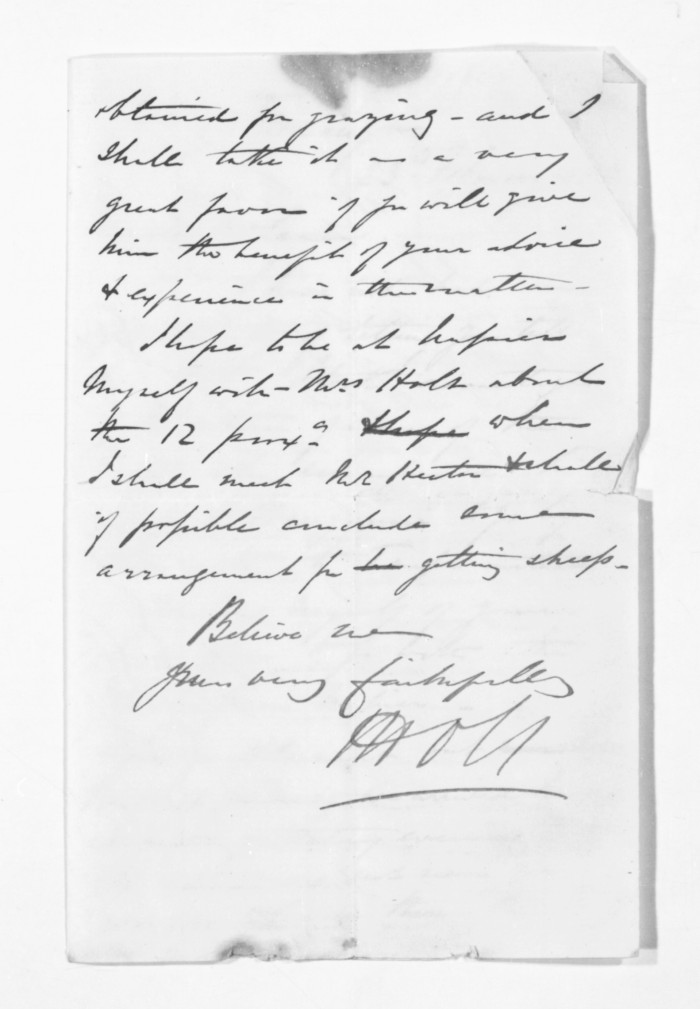 obtained for grazing - and I
shall take it as a very
great favor if you will give
him the benefit of your advice
& experience in the matter -
I hope to be at Napier
Myself with - Mrs Holt about
the 12 prox.o & hope when
I shall meet Mr & shall
if possible conclude some
arrangement for getting sheep -
Believe me
Yours very faithfully
Holt